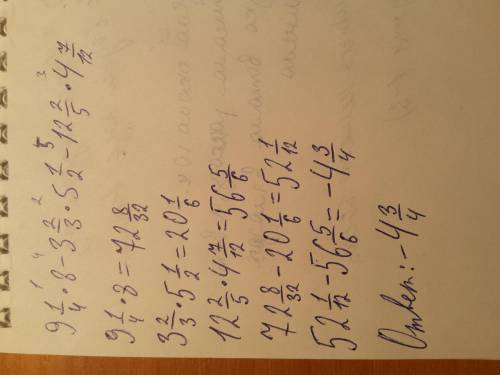 9 1/4 · 8 - 3 2/3 · 5 1/2 - 12 2/5 · 4 7/12
9 1/4 · 8 = 72 8/32
3 2/3 · 5 1/2 = 20 1/6
12 2/5 · 4 7/12 = 56 5/6
72 8/32 - 20 1/6 = 52 1/12
52 1/12 - 56 5/6 = -4 3/4
Ответ: -4 3/4